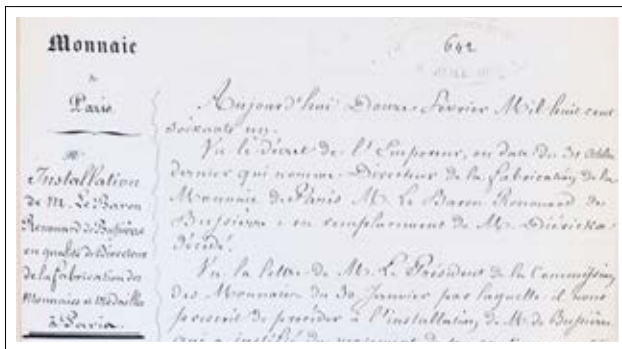 Monnaie
de
Paris
Installation
de M. Le Baron
Renouard de Bussière
en qualité de Directeur
de la fabrication des
Monnaies et Médailles
à Paris.
642
Aujourd'hui Douze Février Mil huit cent
soixante un.
Vu le décret de l'Empereur, en date du 31 Octobre
dernier qui nomme Directeur de la fabrication de la
Monnaie de Paris M. Le Baron Renouard de
Bussière en remplacement de M. Diérickx
décédé.
Vu la lettre de M. Le Président de la Commission
des Monnaies du 30 Janvier par laquelle il nous
prescrit de procéder à l'installation de M. de Bussière
qui a justifié du versement de